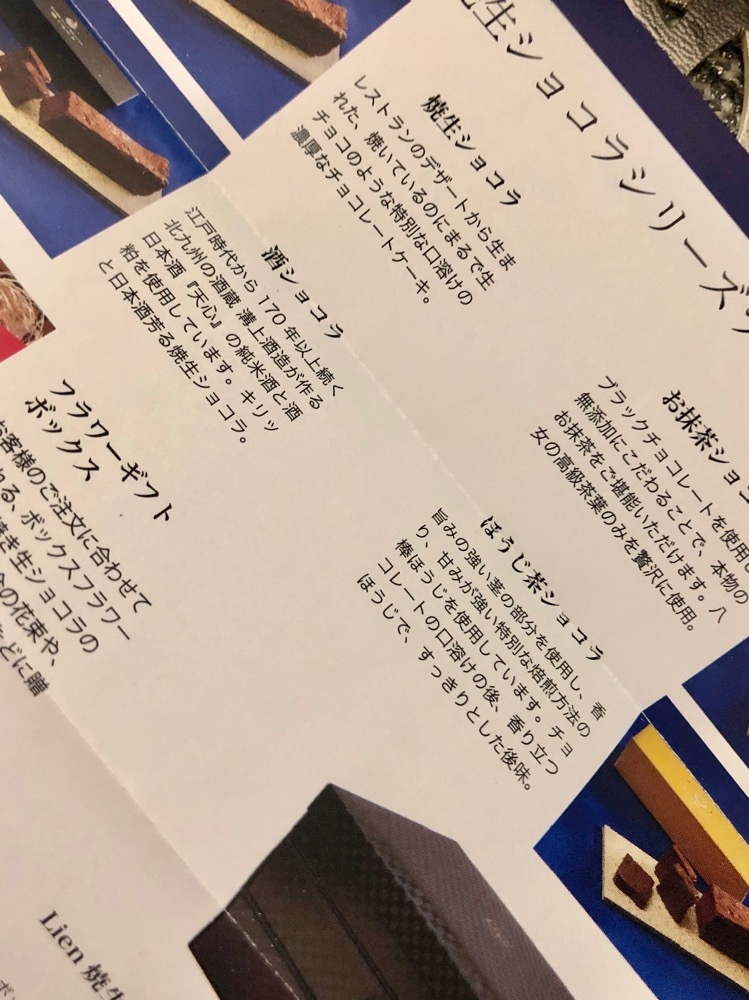 生ショコラシリーズ
焼生ショコラ
レストランのデザートから生ま
れた、焼いているのにまるで生
チョコのような特別な口溶けの
濃厚なチョコレートケーキ。
酒ショコラ
江戸時代から 170 年以上続く
北九州の酒蔵 溝上酒造が作る
日本酒『天心』の純米酒と酒
粕を使用しています。キリッ
と日本酒芳る焼生ショコラ。
お抹茶ショコ
ブラックチョコレートを使用し
無添加にこだわることで、本物の
お抹茶をご堪能いただけます。八
女の高級茶葉のみを贅沢に使用。
ほうじ茶ショコラ
旨みの強い茎の部分を使用し、香
り、甘みが強い特別な焙煎方法の
棒ほうじを使用しています。チョ
コレートの口溶けの後、香り立つ
ほうじで、すっきりとした後味。
フラワーギフト
ボックス
お客様のご注文に合わせて
れる、ボックスフラワー
き生ショコラの
の花束や、
どに贈
Lien 焼生